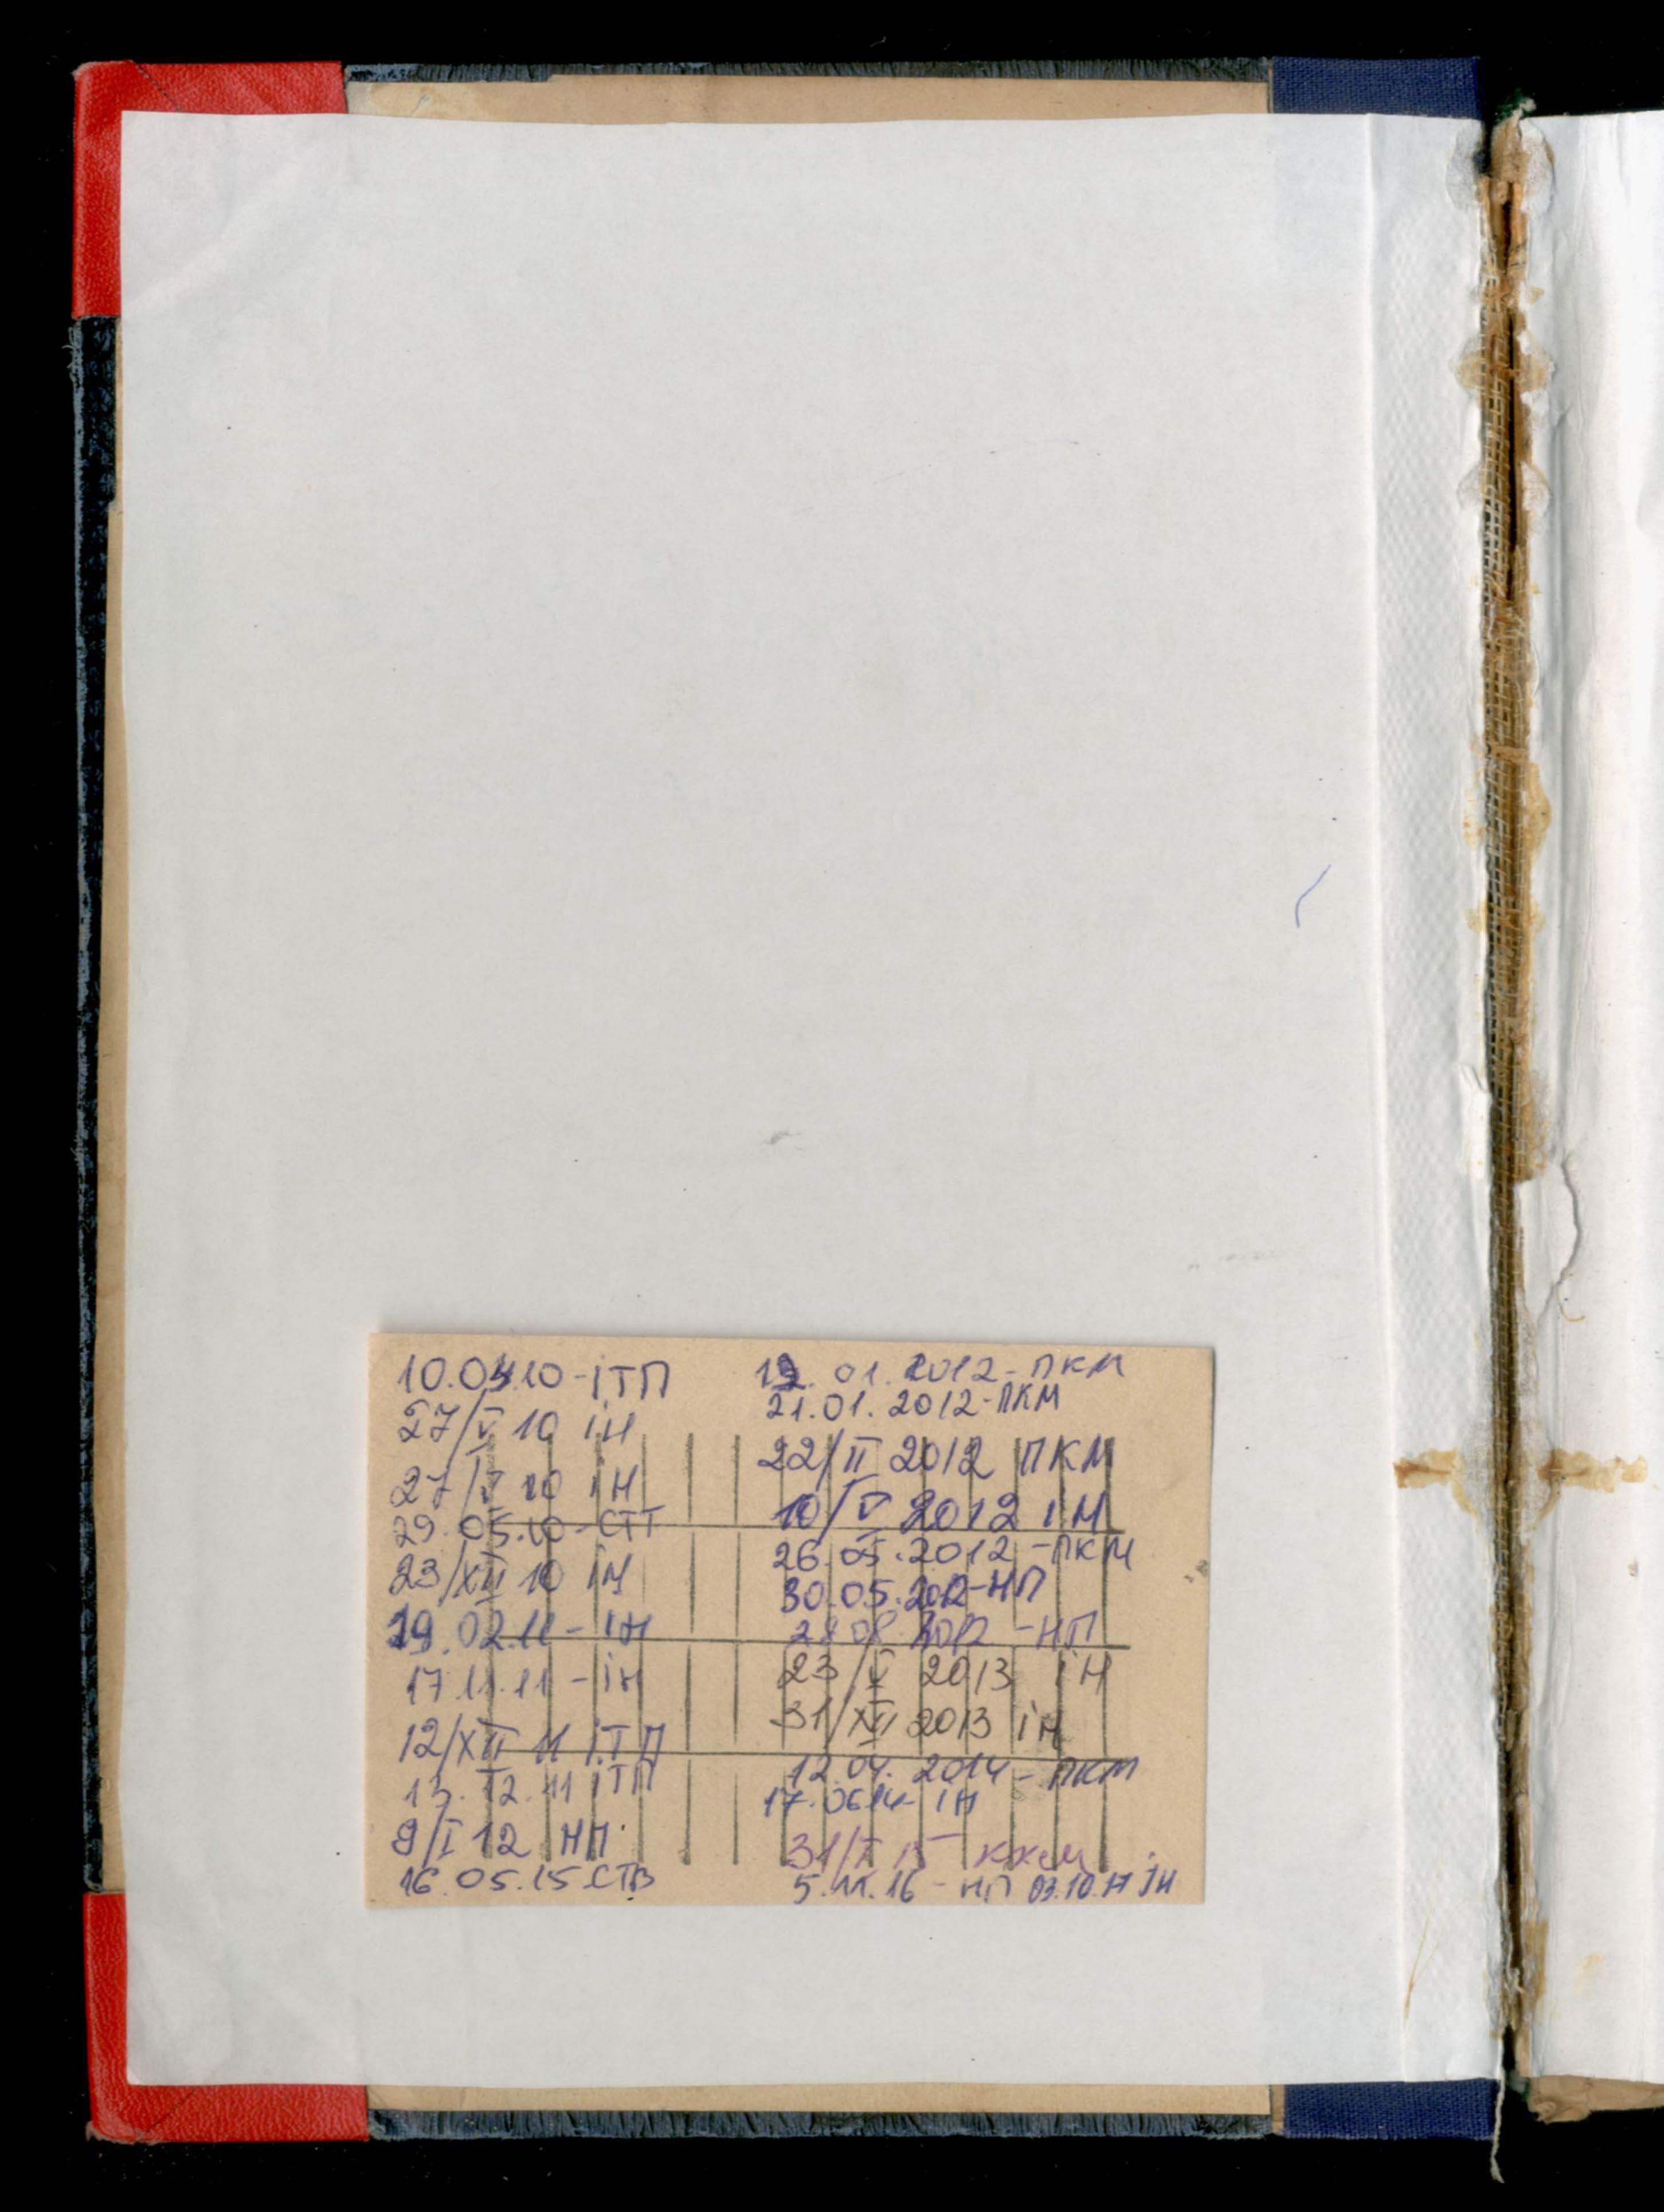 10.04.10-ІТП
27/V 10 ІН
27/V 10 ІН
29.05.10-СТТ
23/XII 10 ІН
19.02.11-ІН
17.11.11-ІН
12/XII 11 ІТП
13.12.11 ІТП
9/I 12 НП
16.05.15.СТВ
19.01.2012-ПКМ
21.01.2012-ПКМ
22/II 2012 ПКМ
10/V 2012 ІН
26.05.2012-ПКМ
30.05.2012-НП
28.08.2012-НП
23/V 2013 ІН
31/XII 2013 ІН
12.04.2014-ПКМ
17.06.14-ІН
31/I 15
5.11.16-НП 03.10.17 ІН